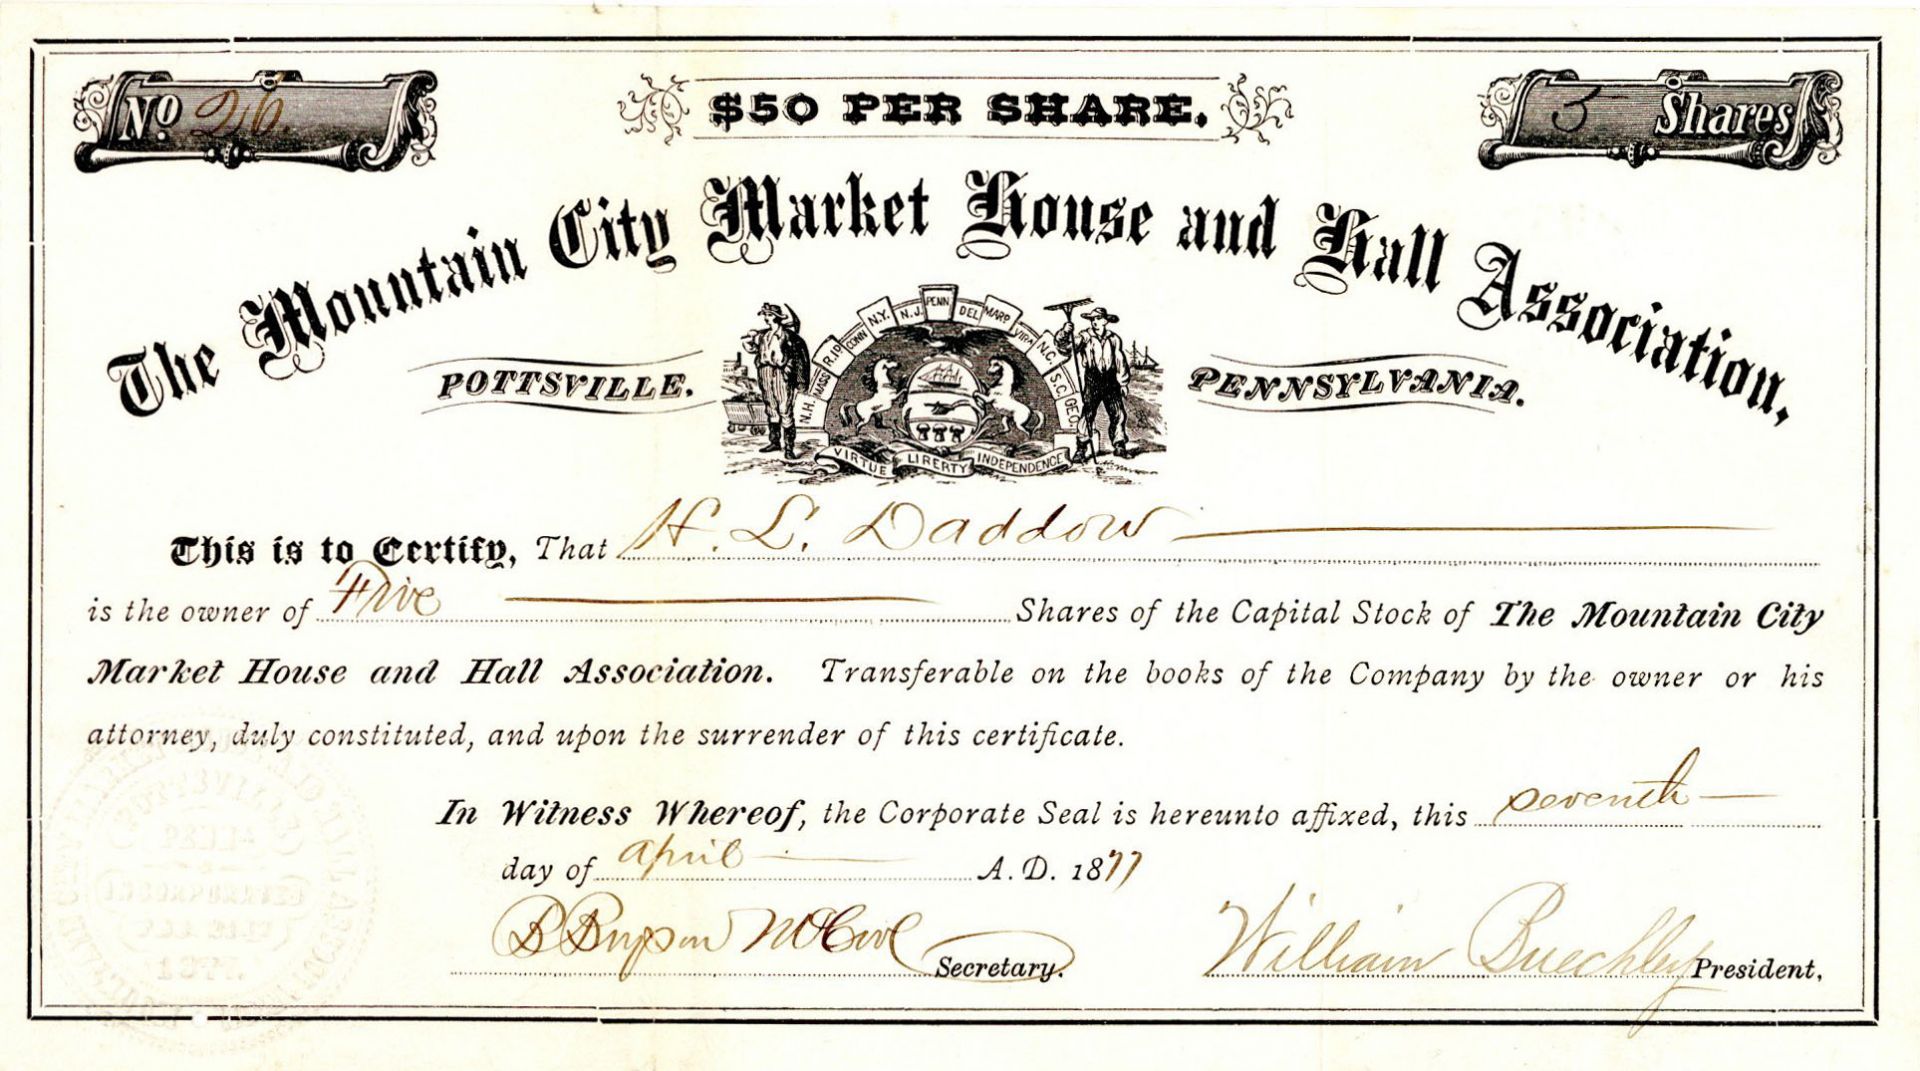 No 26.
$50 PER SHARE.
5 Shares
The Mountain City Market House and Hall Association,
POTTSVILLE.
PENNSYLVANIA.
N.H. MASS R.I? CONN N.Y. N.J. PENN DEL MARD VIRA N.C. S.C. GEO.
VIRTUE LIBERTY INDEPENDENCE
This is to Certify, That H. L. Daddow
is the owner of Five Shares of the Capital Stock of The Mountain City
Market House and Hall Association. Transferable on the books of the Company by the owner or his
attorney, duly constituted, and upon the surrender of this certificate.
In Witness Whereof, the Corporate Seal is hereunto affixed, this seventh
day of april A. D. 1877
Secretary.
William Buechley President,
POTTSVILLE
PENN'A
1877.